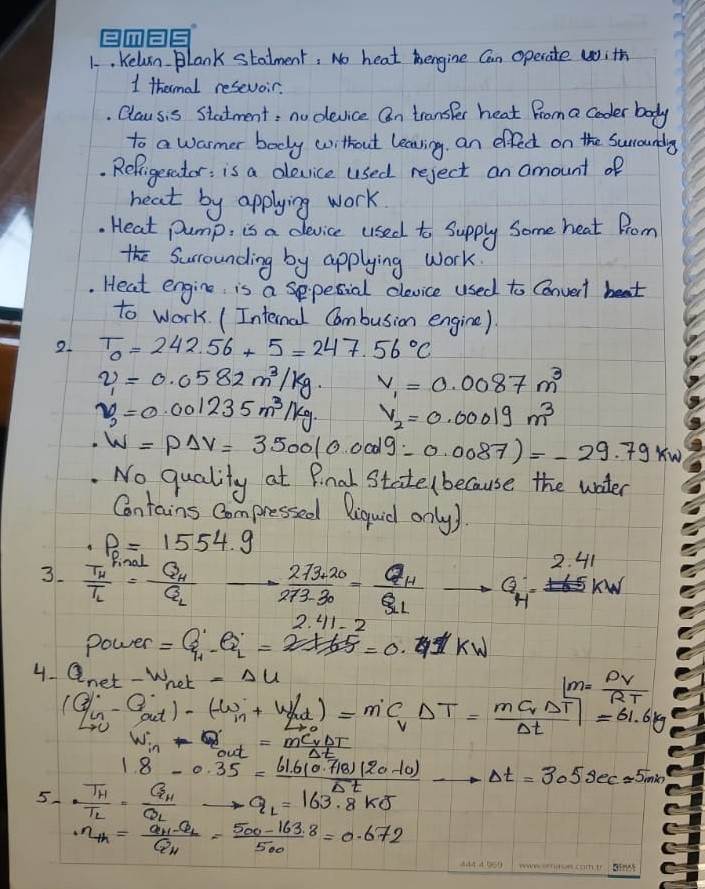 emas
1- . Kelvin-Plank Statment: No heat engine Can operate with
1 thermal resevoir.
. Clausis Statment: no device Can transfer heat from a cooler body
to a warmer body without leaving an effect on the Surrounding
. Refrigerator: is a device used reject an amount of
heat by applying work.
. Heat pump: is a device used to Supply Some heat from
the Surrounding by applying work.
. Heat engine: is a Spesial device used to Convert heat
to work. (Internal Combusion engine).
2- T₀ = 242.56 + 5 = 247.56 °C
v₁ = 0.0582 m³/kg. V₁ = 0.0087 m³
v₂ = 0.001235 m³/kg. V₂ = 0.00019 m³
. W = PΔV = 3500(0.0019 - 0.0087) = - 29.79 KW
. No quality at final State (because the water
Contains Compressed liquid only).
. P final = 1554.9
3- T_H/T_L = Q_H/Q_L → 273+20/273-30 = Q_H/Q_L → Q_H = 2.41 KW
Power = Q̇_H - Q̇_L = 2.41-2 = 0.41 KW
4- Qnet - Wnet = ΔU |m = PV/RT
(Q̇in - Q̇out) - (Ẇin + Ẇout) = ṁ Cv ΔT = m Cv ΔT/Δt | = 61.6 kg
Ẇin - Q̇out = m Cv ΔT/Δt
1.8 - 0.35 = 61.6(0.718)(20-10)/Δt → Δt = 305 Sec ≈ 5min
5- . T_H/T_L = Q_H/Q_L → Q_L = 163.8 KJ
. ηth = Q_H-Q_L/Q_H = 500-163.8/500 = 0.672
444 4 969 www.emasas.com.tr EMAS